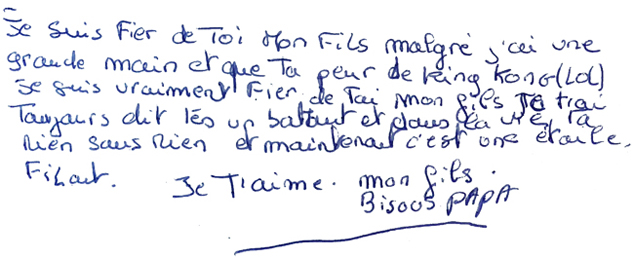 Je suis Fier de Toi mon Fils malgré j'ai une
grande main et que Ta peur de King Kong (LOL)
Je suis vraiment Fier de Toi mon fils Je t'ai
Toujours dit tés un battant et dans la vie ta
Rien sans Rien et maintenant c'est une étoile.
Filant. Je T'aime. mon fils.
Bisous PAPA